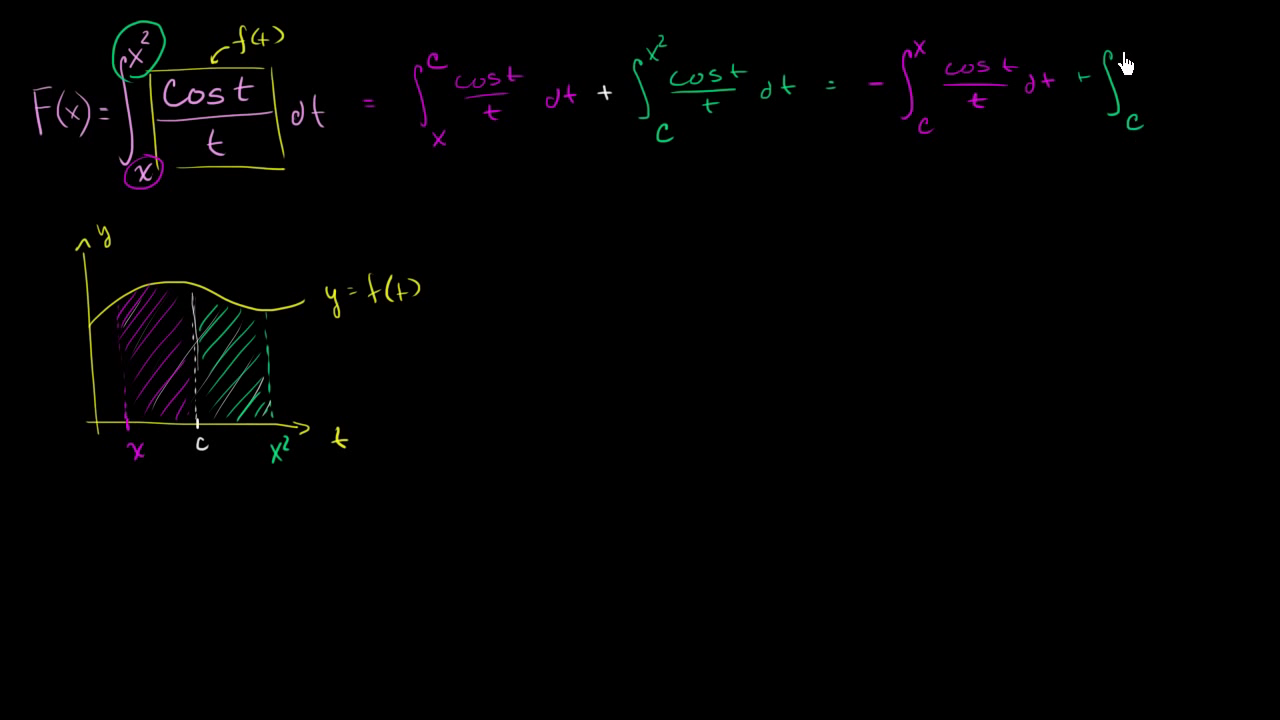 f(t)
F(x) = ∫_x^{x²} cos t / t dt = ∫_x^c cos t / t dt + ∫_c^{x²} cos t / t dt = - ∫_c^x cos t / t dt + ∫_c
y
y = f(t)
x c x² t